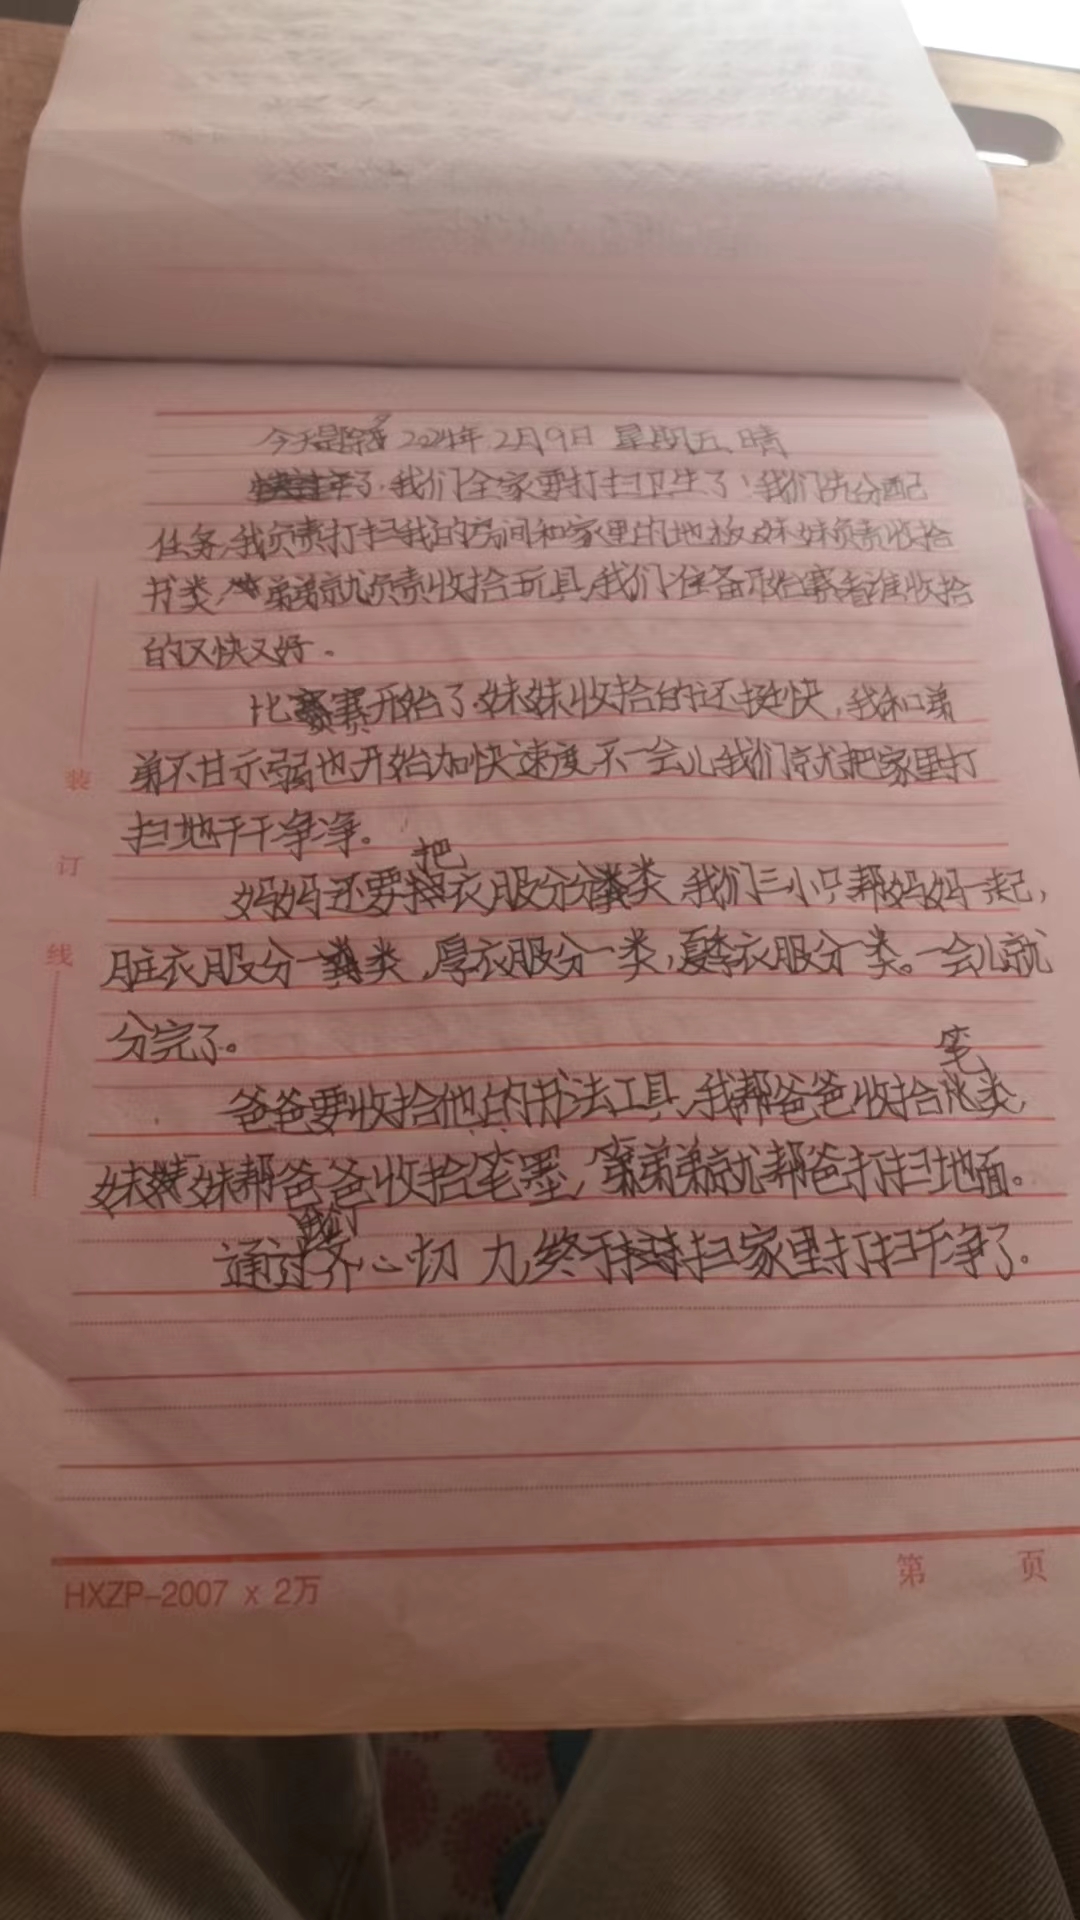 今天是除夕 2024年 2月9日 星期五 晴
快过年了,我们全家要打扫卫生了!我们先分配
任务,我负责打扫我的房间和家里的地板,妹妹负责收拾
书类,弟弟就负责收拾玩具,我们准备开始赛看谁收拾
的又快又好。
比赛开始了,妹妹收拾的还挺快,我和弟
弟不甘示弱也开始加快速度,不一会儿我们就把家里打
扫地干干净净。
妈妈还要把衣服分分类,我们三小只帮妈妈一起,
脏衣服分一类,厚衣服分一类,夏季衣服分一类。一会儿就
分完了。
爸爸要收拾他的书法工具,我帮爸爸收拾笔类,
妹妹帮爸爸收拾笔墨,弟弟就帮爸打扫地面。
通过我们齐心切力,终于扫家里打扫干净了。
装
订
线
HXZP-2007 x 2万
第 页